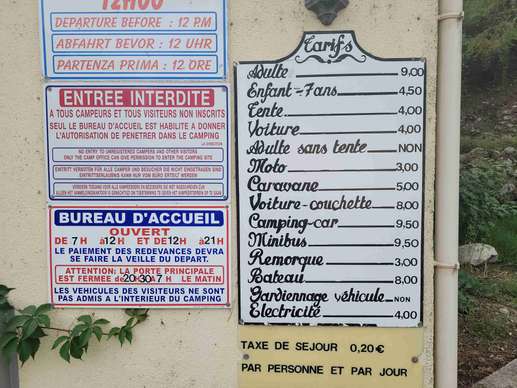 12H00
DEPARTURE BEFORE : 12 P.M
ABFAHRT BEVOR : 12 UHR
PARTENZA PRIMA : 12 ORE
ENTREE INTERDITE
A TOUS CAMPEURS ET TOUS VISITEURS NON INSCRITS
LA DIRECTION
SEUL LE BUREAU D'ACCUEIL EST HABILITE A DONNER
L'AUTORISATION DE PENETRER DANS LE CAMPING
NO ENTRY TO UNREGISTERED CAMPERS AND OTHER VISITORS
ONLY THE CAMP OFFICE CAN GIVE PERMISSION TO ENTER THE CAMPING SITE
BUREAU D'ACCUEIL
OUVERT
DE 7H à12H ET DE12H à21H
LE PAIEMENT DES REDEVANCES DEVRA
SE FAIRE LA VEILLE DU DEPART.
ATTENTION: LA PORTE PRINCIPALE
EST FERMEE de20H30à7H LE MATIN
LES VEHICULES DES VISITEURS NE SONT
PAS ADMIS A L'INTERIEUR DU CAMPING
Tarifs
Adulte 9,00
Enfant-7ans 4,50
Tente 4,00
Voiture 4,00
Adulte sans tente NON
Moto 3,00
Caravane 5,00
Voiture-couchette 8,00
Camping-car 9,50
Minibus 9,50
Remorque 3,00
Bateau 8,00
Gardiennage véhicule NON
Electricité 4,00
TAXE DE SEJOUR 0,20€
PAR PERSONNE ET PAR JOUR